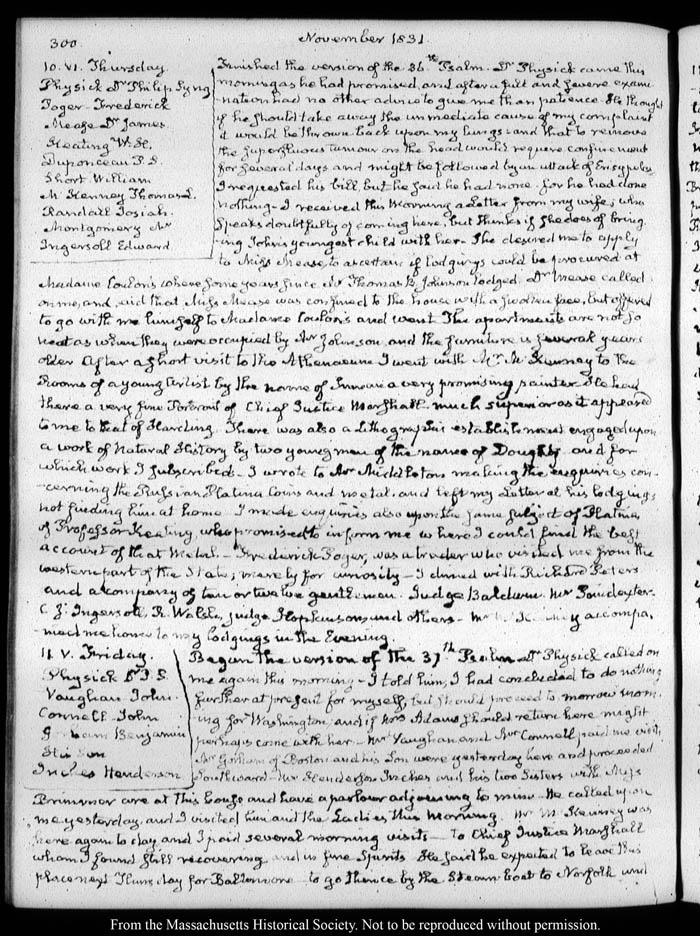 300 November 1831.
10. VI. Thursday
Physick Dr Philip Syng
Foger - Frederick
Mease Dr James
Keating W. H.
Duponceau P. S.
Short William
McKenney Thomas L.
Randall Josiah
Montgomery Mr
Ingersoll Edward
Finished the version of the 36th Psalm. Dr Physick came this
morning as he had promised, and after a full and severe exami-
-nation had no other advice to give me than patience. He thought
if he should take away the immediate cause of my complaint
it would be thrown back upon my lungs and that to remove
the superfluous tumour on the head would require confinement
for several days and might be followed by an attack of Erisypelas
I requested his bill, but he said he had none. for he had done
nothing - I received this Morning a Letter from my wife, who
speaks doubtfully of coming here, but thinks if she does of bring-
-ing John's youngest child with her. She desired me to apply
to Miss Mease to ascertain if Lodgings could be procured at
Madame Coulon's where some years since Mr Thomas B. Johnson lodged. Dr Mease called
on me, and said that Miss Mease was confined to the house with a swollen face, but offered
to go with me himself to Madame Coulon's and went. The apartments are not so
neat as when they were occupied by Mr Johnson and the furniture is several years
older. After a short visit to the Athenaeum I went with Mr McKenney to the
Rooms of a young artist by the name of Inman a very promising painter. He had
there a very fine Portrait of Chief Justice Marshall. much superior as it appeared
to me to that of Harding. There was also a Lithographic establishment engaged upon
a work of Natural History by two young men of the name of Doughty and for
which work I subscribed. I wrote to Mr Middleton making the enquiries con-
-cerning the Russian Platina Coins and metal, and left my Letter at his lodgings
not finding him at home. I made enquiries also upon the same subject of Platina
of Professor Keating who promised to inform me where I could find the best
account of that Metal - Frederick Foger, was a breeder who visited me from the
western part of the State; merely for curiosity - I dined with Richard Peters
and a company of ten or twelve gentlemen. Judge Baldwin. Mr Poindexter.
C. J. Ingersoll, R. Walsh, judge Hopkinson and others - Mr McKenney accompa-
nied me home to my lodgings in the Evening.
11. V. Friday.
Physick Dr P. S.
Vaughan John.
Connell John
Gorham Benjamin
His Son
Inches Henderson
Began the version of the 37th Psalm. Dr Physick called on
me again this morning - I told him, I had concluded to do nothing
further at present for myself, but should proceed to-morrow morn-
-ing for Washington, and if Mrs Adams should return here might
perhaps come with her - Mr Vaughan and Mr Connell paid me visits
Mr Gorham of Boston and his Son were yesterday here and proceeded
Southward - Mr Henderson Inches and his two Sisters with Miss
Brimmer are at this house and have a parlour adjoining to mine. He called upon
me yesterday, and I visited him and the Ladies this Morning. Mr McKenney was
here again to day and I paid several morning visits - To Chief Justice Marshall
whom I found still recovering and in fine Spirits. He said he expected to leave this
place next Thursday for Baltimore to go thence by the Steam boat to Norfolk and
From the Massachusetts Historical Society. Not to be reproduced without permission.